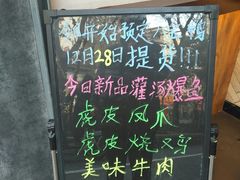 开始预定
12月28日提货!!!
今日新品灌汤爆鱼
虎皮凤爪
虎皮烧叉
美味牛肉